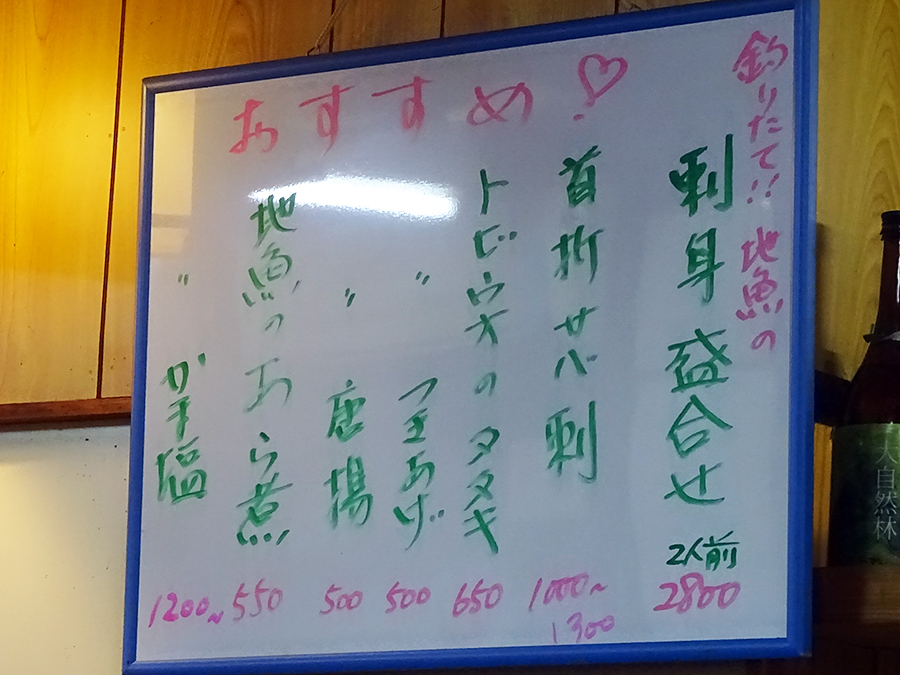 おすすめ♡
釣りたて!! 地魚の
刺身盛合せ 2人前 2800
首折サバ刺 1000~1300
トビウオのタタキ 650
〃 つきあげ 500
〃 唐揚 500
地魚のあら煮 550
〃 カマ塩 1200~
大自然林